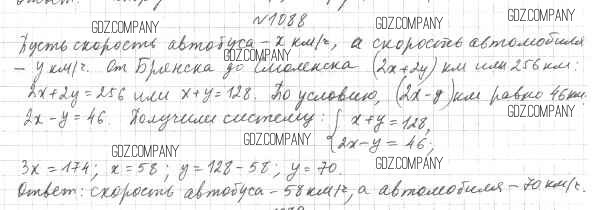 №1088
GDZ.COMPANY GDZ.COMPANY GDZ.COMPANY
Пусть скорость автобуса - x км/ч, а скорость автомобиля
GDZ.COMPANY
- y км/ч. От Брянска до Смоленска (2x+2y) км или 256 км:
GDZ.COMPANY GDZ.COMPANY
2x+2y=256 или x+y=128. По условию, (2x-y) км равно 46 км.
GDZ.COMPANY
2x-y=46. Получили систему: { x+y=128,
2x-y=46;
GDZ.COMPANY GDZ.COMPANY
3x=174; x=58; y=128-58; y=70.
GDZ.COMPANY
Ответ: скорость автобуса - 58 км/ч, а автомобиля - 70 км/ч.